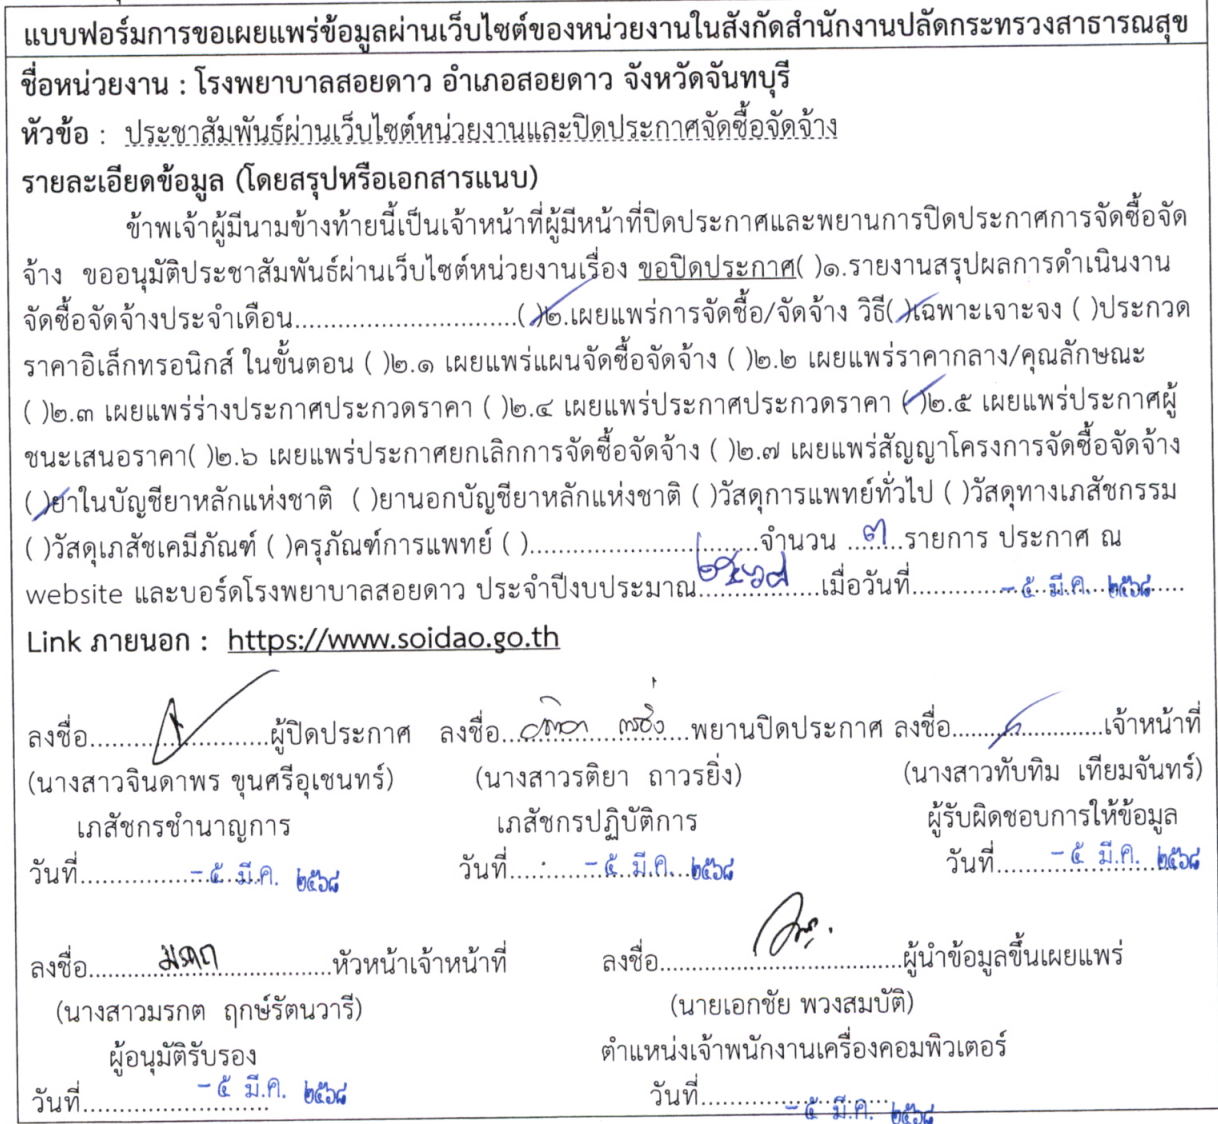 แบบฟอร์มการขอเผยแพร่ข้อมูลผ่านเว็บไซต์ของหน่วยงานในสังกัดสำนักงานปลัดกระทรวงสาธารณสุข
ชื่อหน่วยงาน : โรงพยาบาลสอยดาว อำเภอสอยดาว จังหวัดจันทบุรี
หัวข้อ : ประชาสัมพันธ์ผ่านเว็บไซต์หน่วยงานและปิดประกาศจัดซื้อจัดจ้าง
รายละเอียดข้อมูล (โดยสรุปหรือเอกสารแนบ)
ข้าพเจ้าผู้มีนามข้างท้ายนี้เป็นเจ้าหน้าที่ผู้มีหน้าที่ปิดประกาศและพยานการปิดประกาศการจัดซื้อจัด
จ้าง ขออนุมัติประชาสัมพันธ์ผ่านเว็บไซต์หน่วยงานเรื่อง ขอปิดประกาศ( )๑.รายงานสรุปผลการดำเนินงาน
จัดซื้อจัดจ้างประจำเดือน............................(/)๒.เผยแพร่การจัดซื้อ/จัดจ้าง วิธี(/)เฉพาะเจาะจง ( )ประกวด
ราคาอิเล็กทรอนิกส์ ในขั้นตอน ( )๒.๑ เผยแพร่แผนจัดซื้อจัดจ้าง ( )๒.๒ เผยแพร่ราคากลาง/คุณลักษณะ
( )๒.๓ เผยแพร่ร่างประกาศประกวดราคา ( )๒.๔ เผยแพร่ประกาศประกวดราคา (/)๒.๕ เผยแพร่ประกาศผู้
ชนะเสนอราคา( )๒.๖ เผยแพร่ประกาศยกเลิกการจัดซื้อจัดจ้าง ( )๒.๗ เผยแพร่สัญญาโครงการจัดซื้อจัดจ้าง
(/)ยาในบัญชียาหลักแห่งชาติ ( )ยานอกบัญชียาหลักแห่งชาติ ( )วัสดุการแพทย์ทั่วไป ( )วัสดุทางเภสัชกรรม
( )วัสดุเภสัชเคมีภัณฑ์ ( )ครุภัณฑ์การแพทย์ ( )............................จำนวน ..๓..รายการ ประกาศ ณ
website และบอร์ดโรงพยาบาลสอยดาว ประจำปีงบประมาณ..๒๕๖๘..เมื่อวันที่...........- ๕ มี.ค. ๒๕๖๘....
Link ภายนอก : https://www.soidao.go.th
ลงชื่อ.......................ผู้ปิดประกาศ ลงชื่อ.......................พยานปิดประกาศ ลงชื่อ...................เจ้าหน้าที่
(นางสาวจินดาพร ขุนศรีอุเชนทร์) (นางสาวรติยา ถาวรยิ่ง) (นางสาวทับทิม เทียมจันทร์)
เภสัชกรชำนาญการ เภสัชกรปฏิบัติการ ผู้รับผิดชอบการให้ข้อมูล
วันที่..............- ๕ มี.ค. ๒๕๖๘ วันที่..............- ๕ มี.ค. ๒๕๖๘ วันที่........- ๕ มี.ค. ๒๕๖๘
ลงชื่อ........มรกต........หัวหน้าเจ้าหน้าที่ ลงชื่อ..............................ผู้นำข้อมูลขึ้นเผยแพร่
(นางสาวมรกต ฤกษ์รัตนวารี) (นายเอกชัย พวงสมบัติ)
ผู้อนุมัติรับรอง ตำแหน่งเจ้าพนักงานเครื่องคอมพิวเตอร์
วันที่..............- ๕ มี.ค. ๒๕๖๘ วันที่..............- ๕ มี.ค. ๒๕๖๘